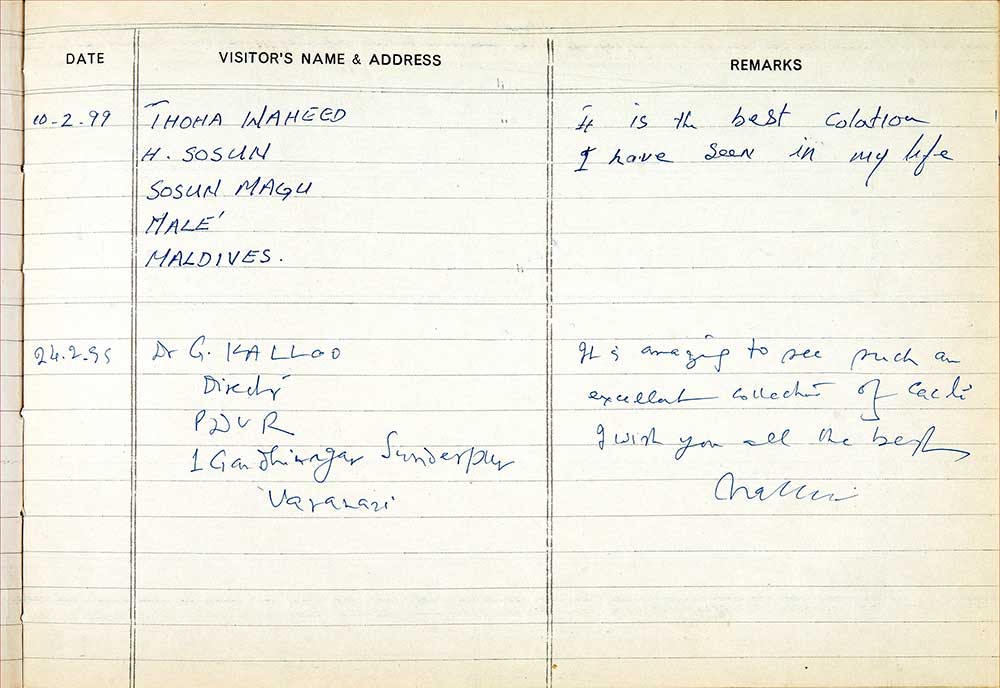 DATE VISITOR'S NAME & ADDRESS REMARKS
10-2-99 THOHA WAHEED It is the best colation
H. SOSUN I have seen in my life
SOSUN MAGU
MALE'
MALDIVES.
24.2.99 Dr G. KALLOO It is amazing to see such an
Director excellent collection of Cacti
PDVR I wish you all the best
1 Gandhinagar Sunderpur
Varanasi